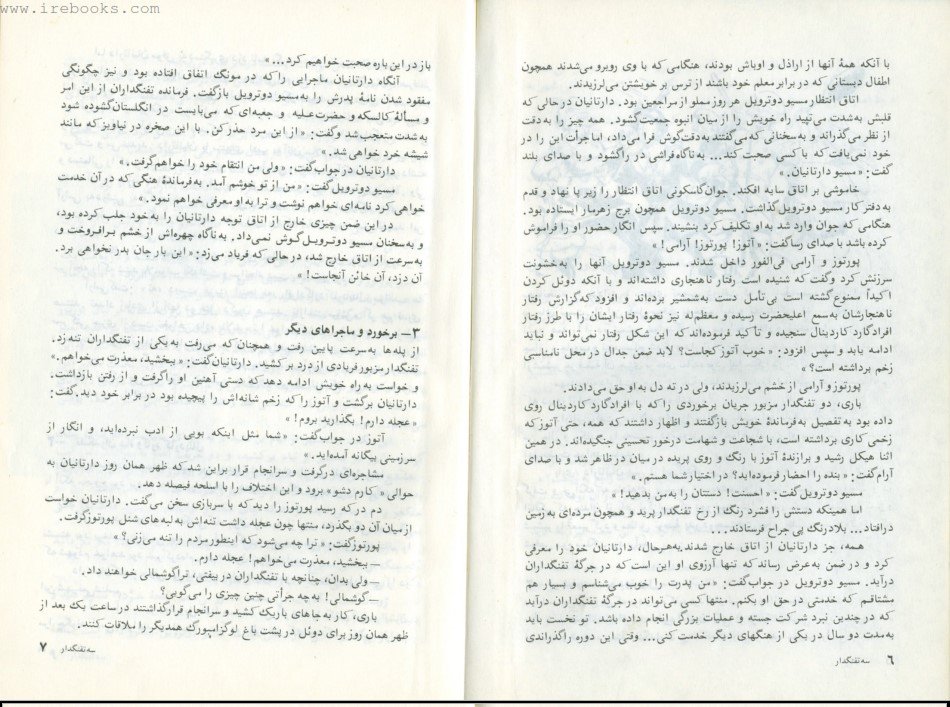 www.irebooks.com
با آنکه همهٔ آنها از اراذل و اوباش بودند، هنگامی که با وی روبرو می‌شدند همچون
اطفال دبستانی که در برابر معلم خود باشند از ترس بر خویشتن می‌لرزیدند.
اتاق انتظار مسیو دوترویل هر روز مملو از مراجعین بود. دارتانیان در حالی که
قلبش به‌شدت می‌تپید راه خویش را از میان انبوه جمعیت گشود. همه چیز را به‌دقت
از نظر می‌گذراند و به‌سخنانی که می‌گفتند به‌دقت گوش فرا می‌داد، اما جرأت این را در
خود نمی‌یافت که با کسی صحبت کند... به‌ناگاه فراشی در را گشود و با صدای بلند
گفت: «مسیو دارتانیان.»
خاموشی بر اتاق سایه افکند. جوان گاسکونی اتاق انتظار را زیر پا نهاد و قدم
به دفتر کار مسیو دوترویل گذاشت. مسیو دوترویل همچون برج زهرمار ایستاده بود.
هنگامی که جوان وارد شد به او تکلیف کرد بنشیند. سپس انگار حضور او را فراموش
کرده باشد با صدای رسا گفت: «آتوز! پورتوز! آرامی!»
پورتوز و آرامی فی‌الفور داخل شدند. مسیو دوترویل آنها را به‌خشونت
سرزنش کرد و گفت که شنیده است رفتار ناهنجاری داشته‌اند و با آنکه دوئل کردن
اکیداً ممنوع گشته است بی‌تأمل دست به‌شمشیر برده‌اند و افزود که گزارش رفتار
ناهنجارشان به‌سمع اعلیحضرت رسیده و معظم‌له نیز نحوهٔ رفتار ایشان را با طرز رفتار
افراد گارد کاردینال سنجیده و تأکید فرموده‌اند که این شکل رفتار نمی‌تواند و نباید
ادامه یابد و سپس افزود: «خوب آتوز کجاست؟ لابد ضمن جدال در محل نامناسبی
زخم برداشته است؟»
پورتوز و آرامی از خشم می‌لرزیدند، ولی در ته دل به او حق می‌دادند.
باری، دو تفنگدار مزبور جریان برخوردی را که با افراد گارد کاردینال روی
داده بود به تفصیل به‌فرماندهٔ خویش بازگفتند و اظهار داشتند که همه، حتی آتوز که
زخمی کاری برداشته است، با شجاعت و شهامت درخور تحسینی جنگیده‌اند. در همین
اثنا هیکل رشید و برازندهٔ آتوز با رنگ و روی پریده در میان در ظاهر شد و با صدای
آرام گفت: «بنده را احضار فرموده‌اید؟ در اختیار شما هستم.»
مسیو دوترویل گفت: «احسنت! دستتان را به من بدهید!»
اما همینکه دستش را فشرد رنگ از رخ تفنگدار پرید و همچون مرده‌ای به زمین
درافتاد... بلادرنگ پی جراح فرستادند...
همه، جز دارتانیان از اتاق خارج شدند به‌هرحال، دارتانیان خود را معرفی
کرد و در ضمن به‌عرض رساند که تنها آرزوی او این است که در جرگهٔ تفنگداران
درآید. مسیو دوترویل در جواب گفت: «من پدرت را خوب می‌شناسم و بسیار هم
مشتاقم که خدمتی در حق او بکنم. منتها کسی می‌تواند در جرگهٔ تفنگداران درآید
که در چندین نبرد شرکت جسته و عملیات بزرگی انجام داده باشد. تو نخست باید
به‌مدت دو سال در یکی از هنگهای دیگر خدمت کنی... وقتی این دوره را گذراندی
۶ سه تفنگدار
باز در این باره صحبت خواهیم کرد...»
آنگاه دارتانیان ماجرایی را که در مونگ اتفاق افتاده بود و نیز چگونگی
مفقود شدن نامهٔ پدرش را به‌مسیو دوترویل بازگفت. فرمانده تفنگداران از این امر
و مسألهٔ کالسکه و حضرت علیه و جعبه‌ای که می‌بایست در انگلستان گشوده شود
به شدت متعجب شد و گفت: «از این مرد حذر کن. با این صخره در نیاویز که مانند
شیشه خرد خواهی شد.»
دارتانیان در جواب گفت: «ولی من انتقام خود را خواهم گرفت.»
مسیو دوترویل گفت: «من از تو خوشم آمد. به فرماندهٔ هنگی که در آن خدمت
خواهی کرد نامه‌ای خواهم نوشت و ترا به او معرفی خواهم نمود.»
در این ضمن چیزی خارج از اتاق توجه دارتانیان را به‌خود جلب کرده بود،
و به‌سخنان مسیو دوترویل گوش نمی‌داد. به‌ناگاه چهره‌اش از خشم برافروخت و
به‌سرعت از اتاق خارج شده، در حالی که فریاد می‌زد: «این بار جان بدر نخواهی برد.
آن دزد، آن خائن آنجاست!»
۳– برخورد و ماجراهای دیگر
از پله‌ها به‌سرعت پایین رفت و همچنان که می‌رفت به یکی از تفنگداران تنه زد.
تفنگدار مزبور فریادی از درد بر کشید. دارتانیان گفت: «ببخشید، معذرت می‌خواهم.»
و خواست به راه خویش ادامه دهد که دستی آهنین او را گرفت و از رفتن بازداشت.
دارتانیان برگشت و آتوز را که زخم شانه‌اش را پیچیده بود در برابر خود دید. گفت:
«عجله دارم! بگذارید بروم!»
آتوز در جواب گفت: «شما مثل اینکه بویی از ادب نبرده‌اید، و انگار از
سرزمینی بیگانه آمده‌اید.»
مشاجره‌ای درگرفت و سرانجام قرار براین شد که ظهر همان روز دارتانیان به
حوالی «کارم دشو» برود و این اختلاف را با اسلحه فیصله دهد.
دم در که رسید پورتوز را دید که با سربازی سخن می‌گفت. دارتانیان خواست
از میان آن دو بگذرد، منتها چون عجله داشت تنه‌اش به لبه‌های شنل پورتوز گرفت.
پورتوز گفت: «ترا چه می‌شود که اینطور مردم را تنه می‌زنی؟»
– ببخشید، معذرت می‌خواهم! عجله دارم.
– ولی بدان، چنانچه با تفنگداران در بیفتی، ترا گوشمالی خواهند داد.
– گوشمالی! به‌چه جرأتی چنین چیزی را می‌گویی؟
باری، کار به جاهای باریک کشید و سرانجام قرار گذاشتند در ساعت یک بعد از
ظهر همان روز برای دوئل در پشت باغ لوگزامبورگ همدیگر را ملاقات کنند.
سه تفنگدار ۷